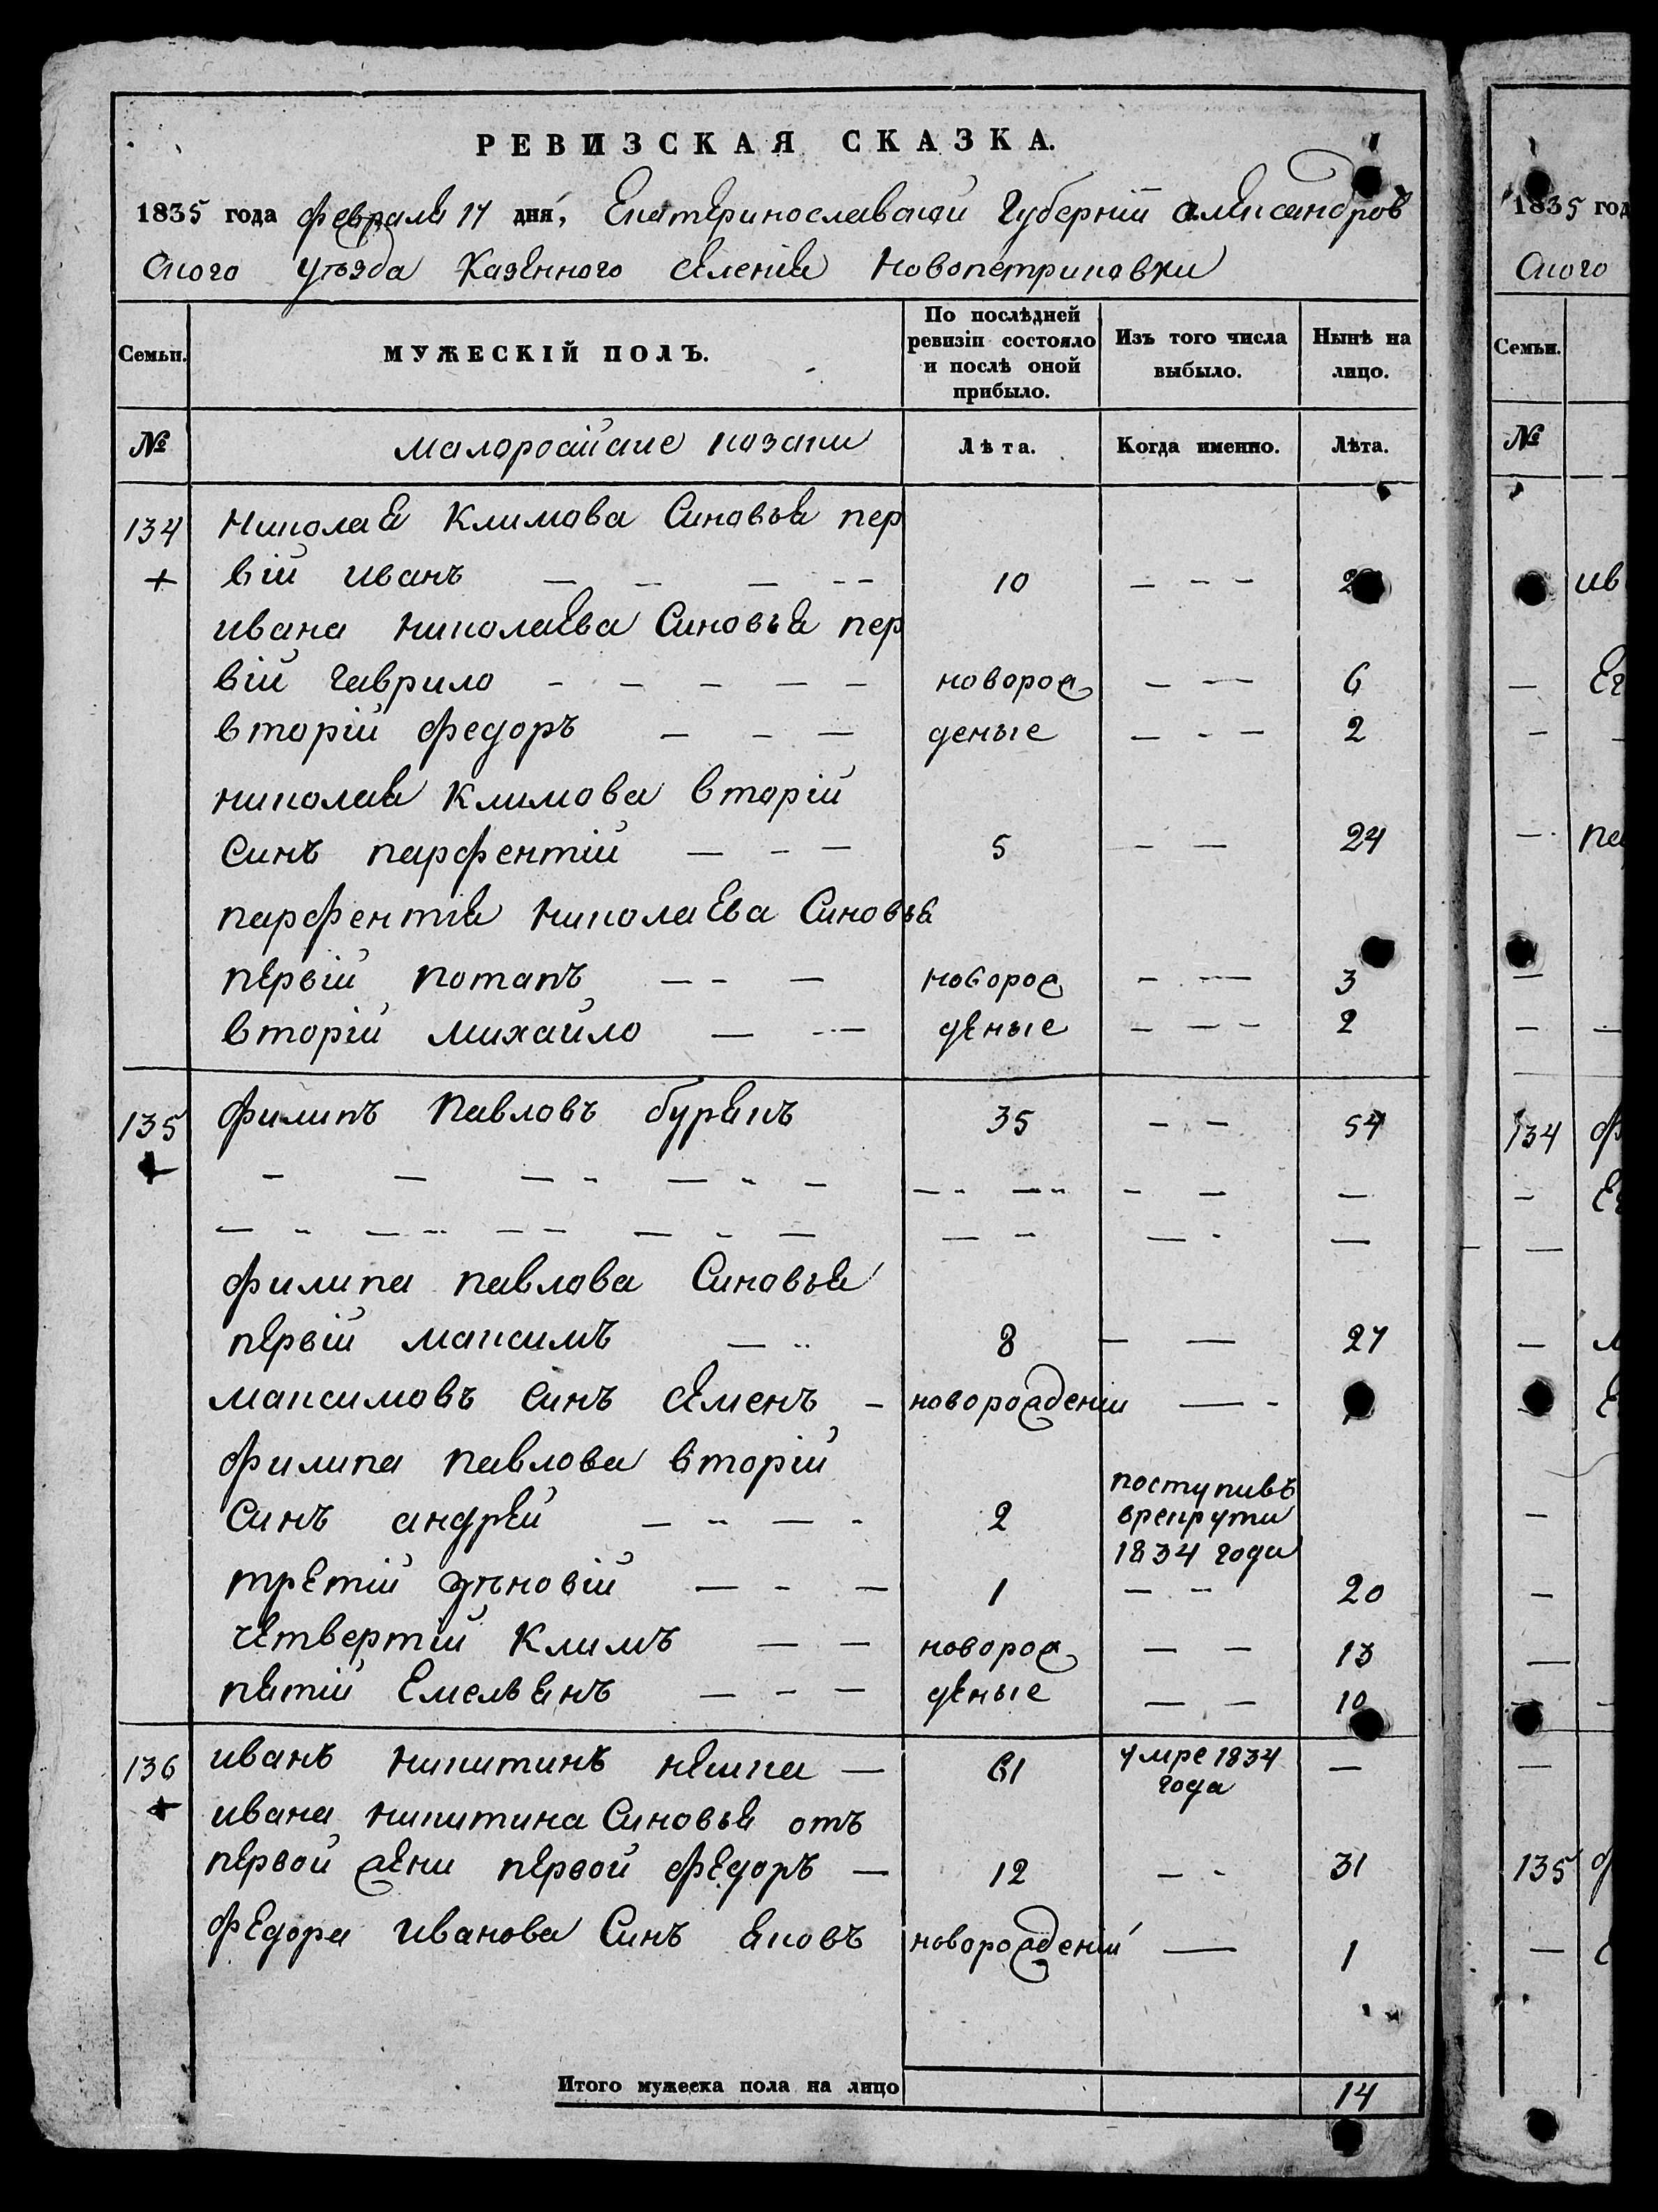 РЕВИЗСКАЯ СКАЗКА.
1835 года февраля 17 дня, Екатеринославской Губернїи Александров
ского уѣзда Казенного селенїя Новопетриковки
Семьи. МУЖЕСКІЙ ПОЛЪ. По послѣдней ревизіи состояло и послѣ оной прибыло. Изъ того числа выбыло. Нынѣ на лицо.
№ малоросійские козаки Лѣта. Когда именно. Лѣта.
134 Николая Климова Синовья пер
вій иванъ — — — — 10 — — —
ивана николаева Синовья пер
вій гаврило — — — — — новорож — — 6
вторій федоръ — — — деные — — — 2
николая Климова вторій
синъ парфентій — — — 5 — — 24
парфентія николаева Синовья
первій потапъ — — — новорож — — 3
вторій михайло — — деные — — — 2
135 филипъ Павловъ бурякъ 35 — — 54
филипа павлова Синовья
первій максимъ — 8 — — 27
максимовъ синъ семенъ — новорожденій — -
филипа павлова вторій
Синъ андрей — — — - 2 поступивъ врекрути 1834 года
третій зѣновій — - — 1 — — 20
четвертій Климъ — — новорож — — 13
пятій Емельянъ — — — деные — — 10
136 иванъ никитинъ кяшка — 61 умре 1834 года —
ивана никитина Синовья отъ
первой жени первой федоръ — 12 — - 31
федора иванова Синъ яковъ новорожденій — 1
Итого мужеска пола на лицо 14
1835 год
ского
Семьи.
№
ив
Ег
па
134 ф
Ег
135 ф